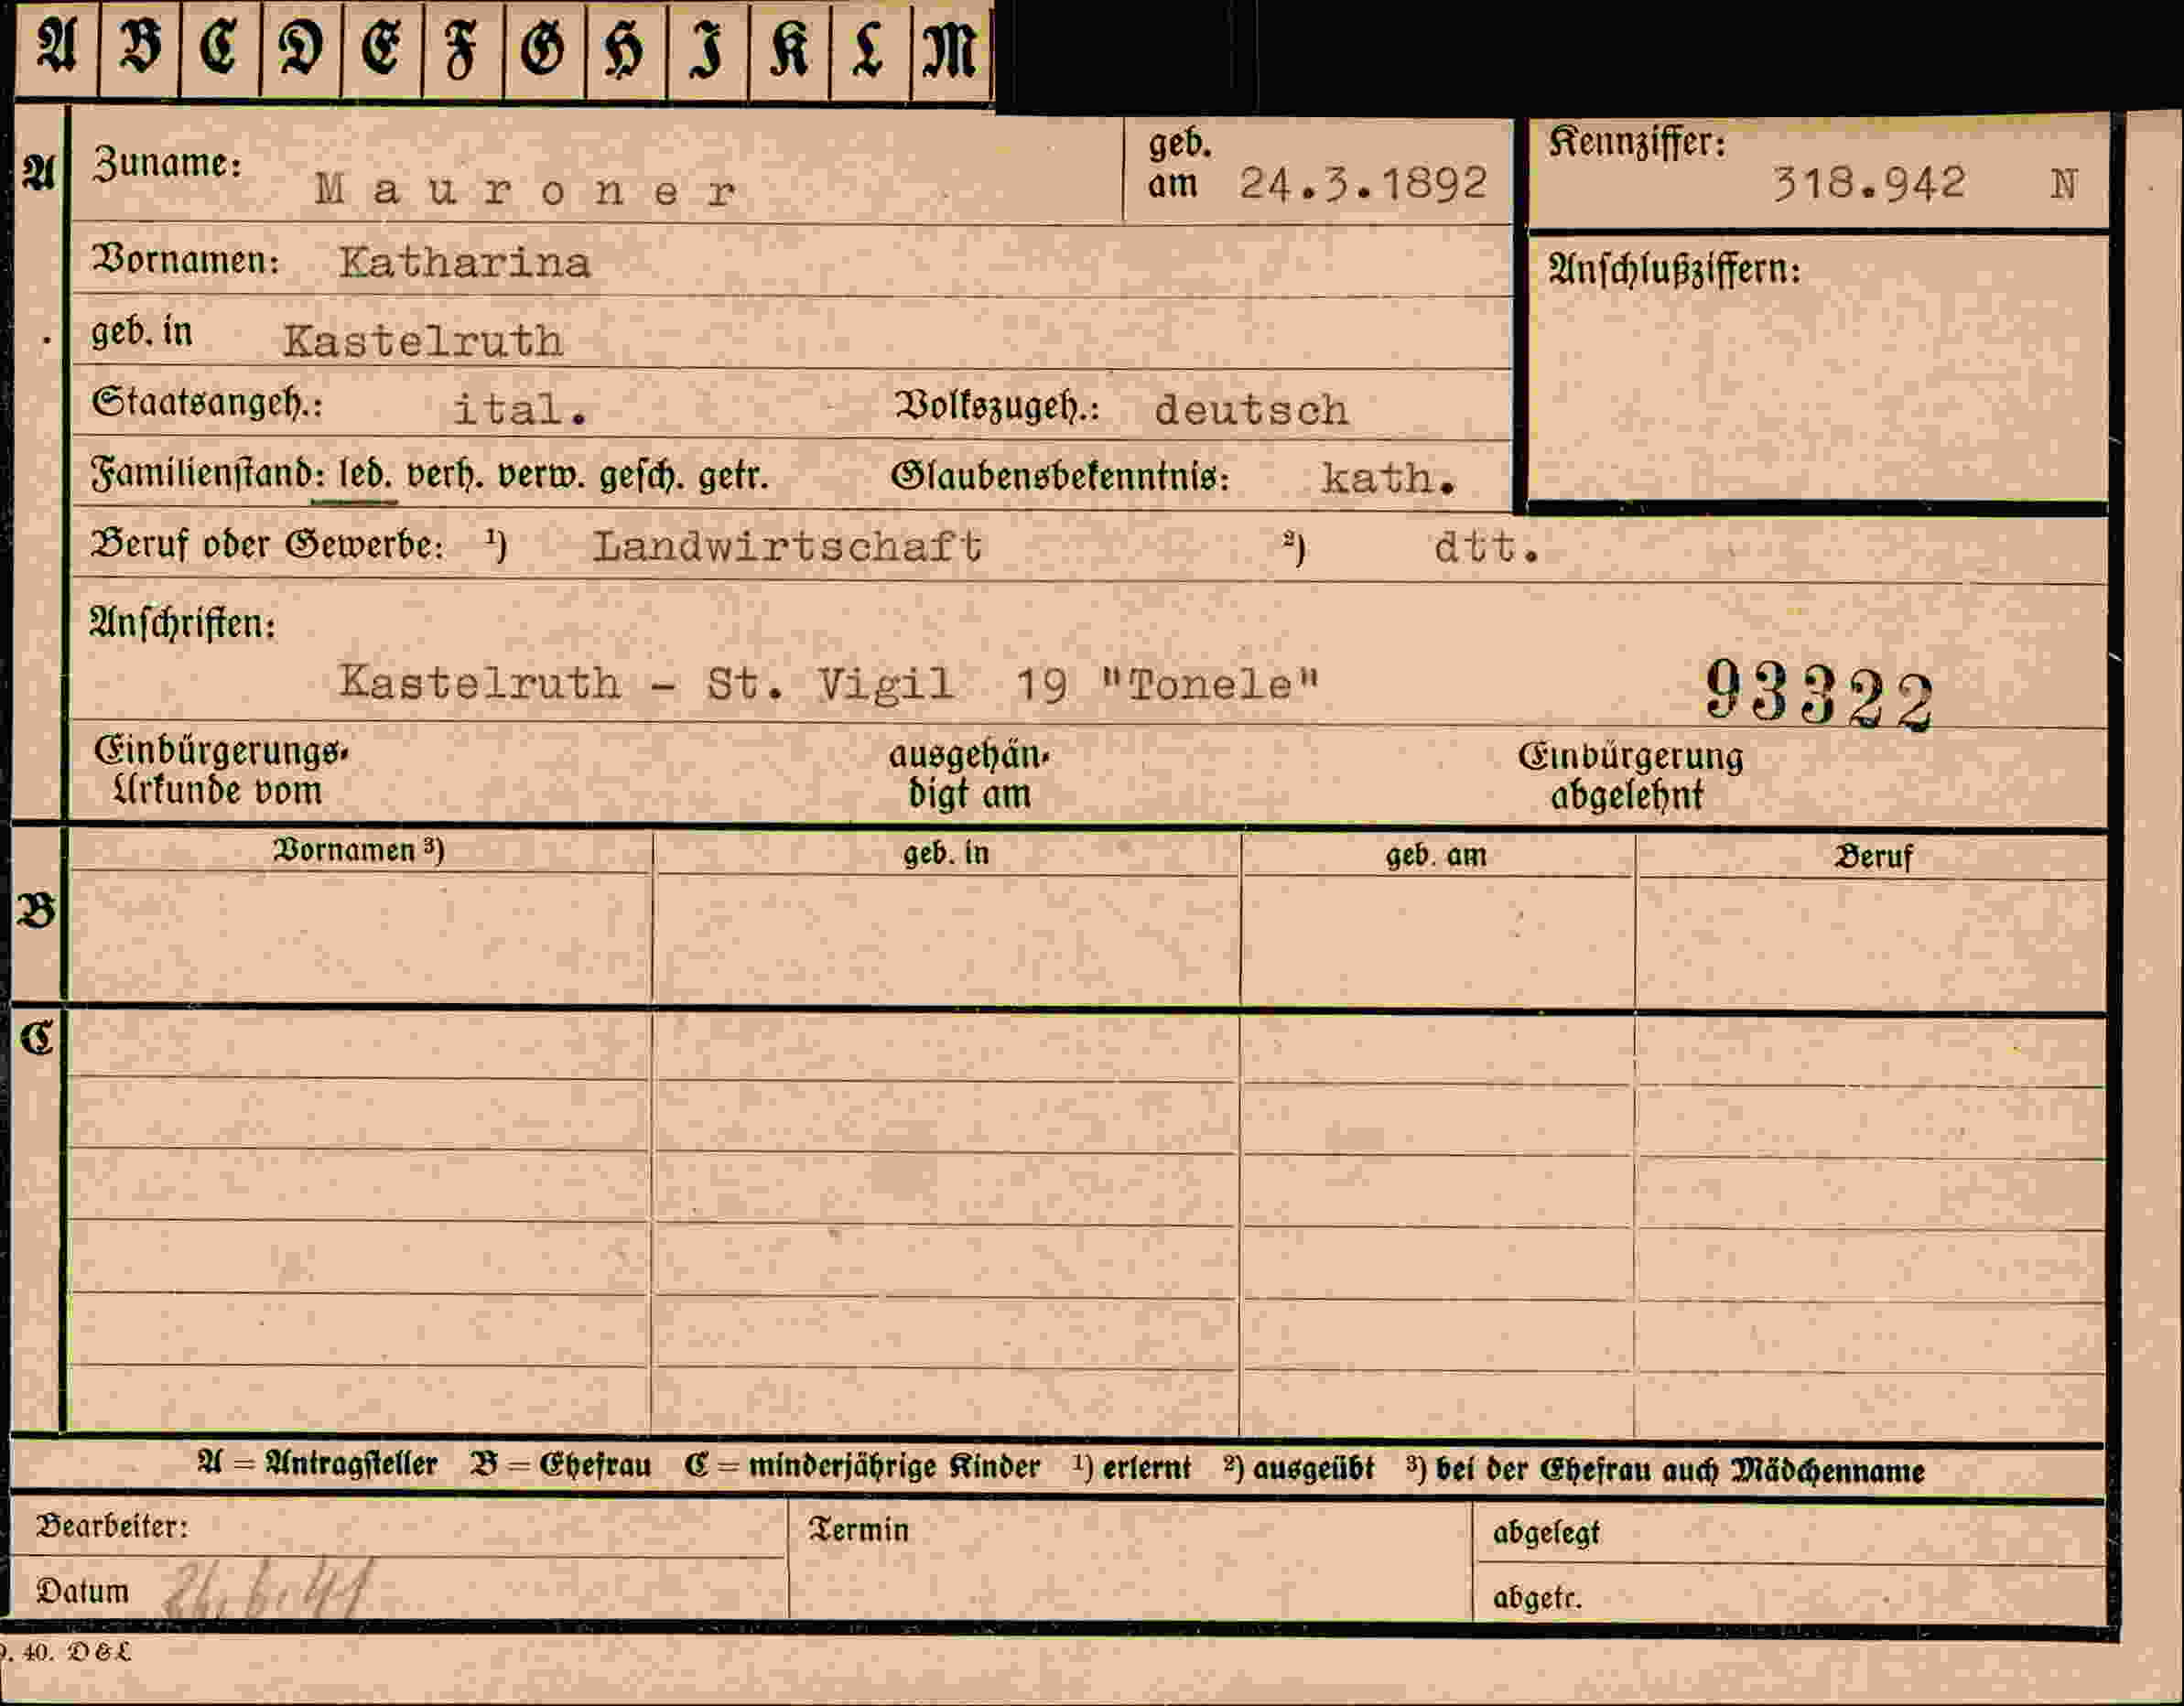 A B C D E F G H I K L M
A Zuname: Mauroner geb. am 24.3.1892 Kennziffer: 318.942 N
Vornamen: Katharina Anschlußziffern:
geb. in Kastelruth
Staatsangeh.: ital. Volkszugeh.: deutsch
Familienstand: led. verh. verw. gesch. getr. Glaubensbekenntnis: kath.
Beruf oder Gewerbe: ¹) Landwirtschaft ²) dtt.
Anschriften:
Kastelruth - St. Vigil 19 "Tonele" 93322
Einbürgerungs- ausgehän- Einbürgerung
Urkunde vom digt am abgelehnt
Vornamen ³) geb. in geb. am Beruf
B
C
A = Antragsteller B = Ehefrau C = minderjährige Kinder ¹) erlernt ²) ausgeübt ³) bei der Ehefrau auch Mädchenname
Bearbeiter: Termin abgelegt
Datum 26.6.41 abgetr.
9. 40. D&L